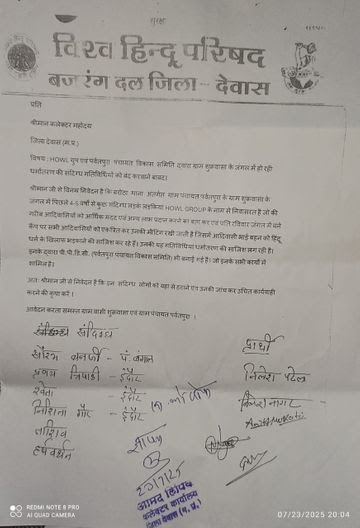 विश्व हिन्दू परिषद
बजरंग दल जिला - देवास
प्रति
श्रीमान कलेक्टर महोदय
जिला देवास (म.प्र.)
विषय : HOWL ग्रुप एवं पर्वतपुरा पंचायत विकास समिति द्वारा ग्राम शुक्रवासा के जंगल में हो रही
धर्मांतरण की संदिग्ध गतिविधियों को बंद करवाने बाबत।
श्रीमान जी से विनम्र निवेदन है कि बरोठा थाना अंतर्गत ग्राम पंचायत पर्वतपुरा के ग्राम शुक्रवासा के
जंगल में पिछले 4-5 वर्षों से कुछ संदिग्ध लड़के लड़कियां HOWL GROUP के नाम से निवासरत है जो की
गरीब आदिवासियों को आर्थिक मदद एवं अन्य लाभ प्रदान करने का कह कर एवं प्रति रविवार जंगल में बने
कैंप पर सभी आदिवासियों को एकत्रित कर उनकी मीटिंग रखी जाती है जिसमें आदिवासी भाई बहन को हिंदू
धर्म के खिलाफ भड़काने की साजिश कर रहे हैं। उनकी यह गतिविधियां धर्मांतरण की साजिश लग रही है।
इनके द्वारा पी.पी.डि.सी. (पर्वतपुरा पंचायत विकास समिति) भी बनाई गई है। जो इनके सभी कार्यों में
शामिल है।
अतः श्रीमान जी से निवेदन है कि इन संदिग्ध लोगों को यहां से हटाने एवं उनकी जांच कर उचित कार्यवाही
करने की कृपा करें।
आवेदन कर्ता समस्त ग्राम वासी शुक्रवासा एवं ग्राम पंचायत पर्वतपुरा ।
संदिग्ध
प्रार्थी
सौरभ बनर्जी - पं. बंगाल
प्रणय त्रिपाठी - इंदौर
निलेश पटेल
श्वेता - इंदौर
नागर
निशिता गौर - इंदौर
हर्षवर्धन
आवक लिपिक
कलेक्टर कार्यालय
जिला देवास (म. प्र.)
REDMI NOTE 8 PRO
AI QUAD CAMERA
07/23/2025 20:04